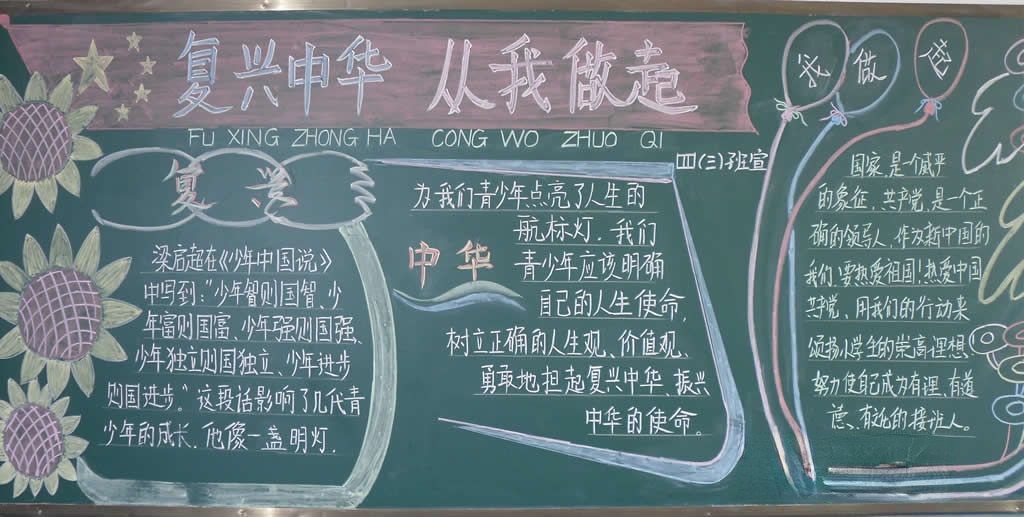 复兴中华 从我做起
FU XING ZHONG HA CONG WO ZHUO QI
四(三)班宣
复兴
梁启超在《少年中国说》
中写到:"少年智则国智、少
年富则国富、少年强则国强、
少年独立则国独立、少年进步
则国进步。"这段话影响了几代青
少年的成长.他像一盏明灯.
中华
为我们青少年点亮了人生的
航标灯.我们
青少年应该明确
自己的人生使命,
树立正确的人生观、价值观、
勇敢地担起复兴中华、振兴
中华的使命。
我做起
国家是个威严
的象征,共产党是一个正
确的领导人,作为新中国的
我们,要热爱祖国!热爱中国
共产党、用我们的行动来
颂扬小学生的崇高理想,
努力使自己成为有理、有道
德、有的接班人。